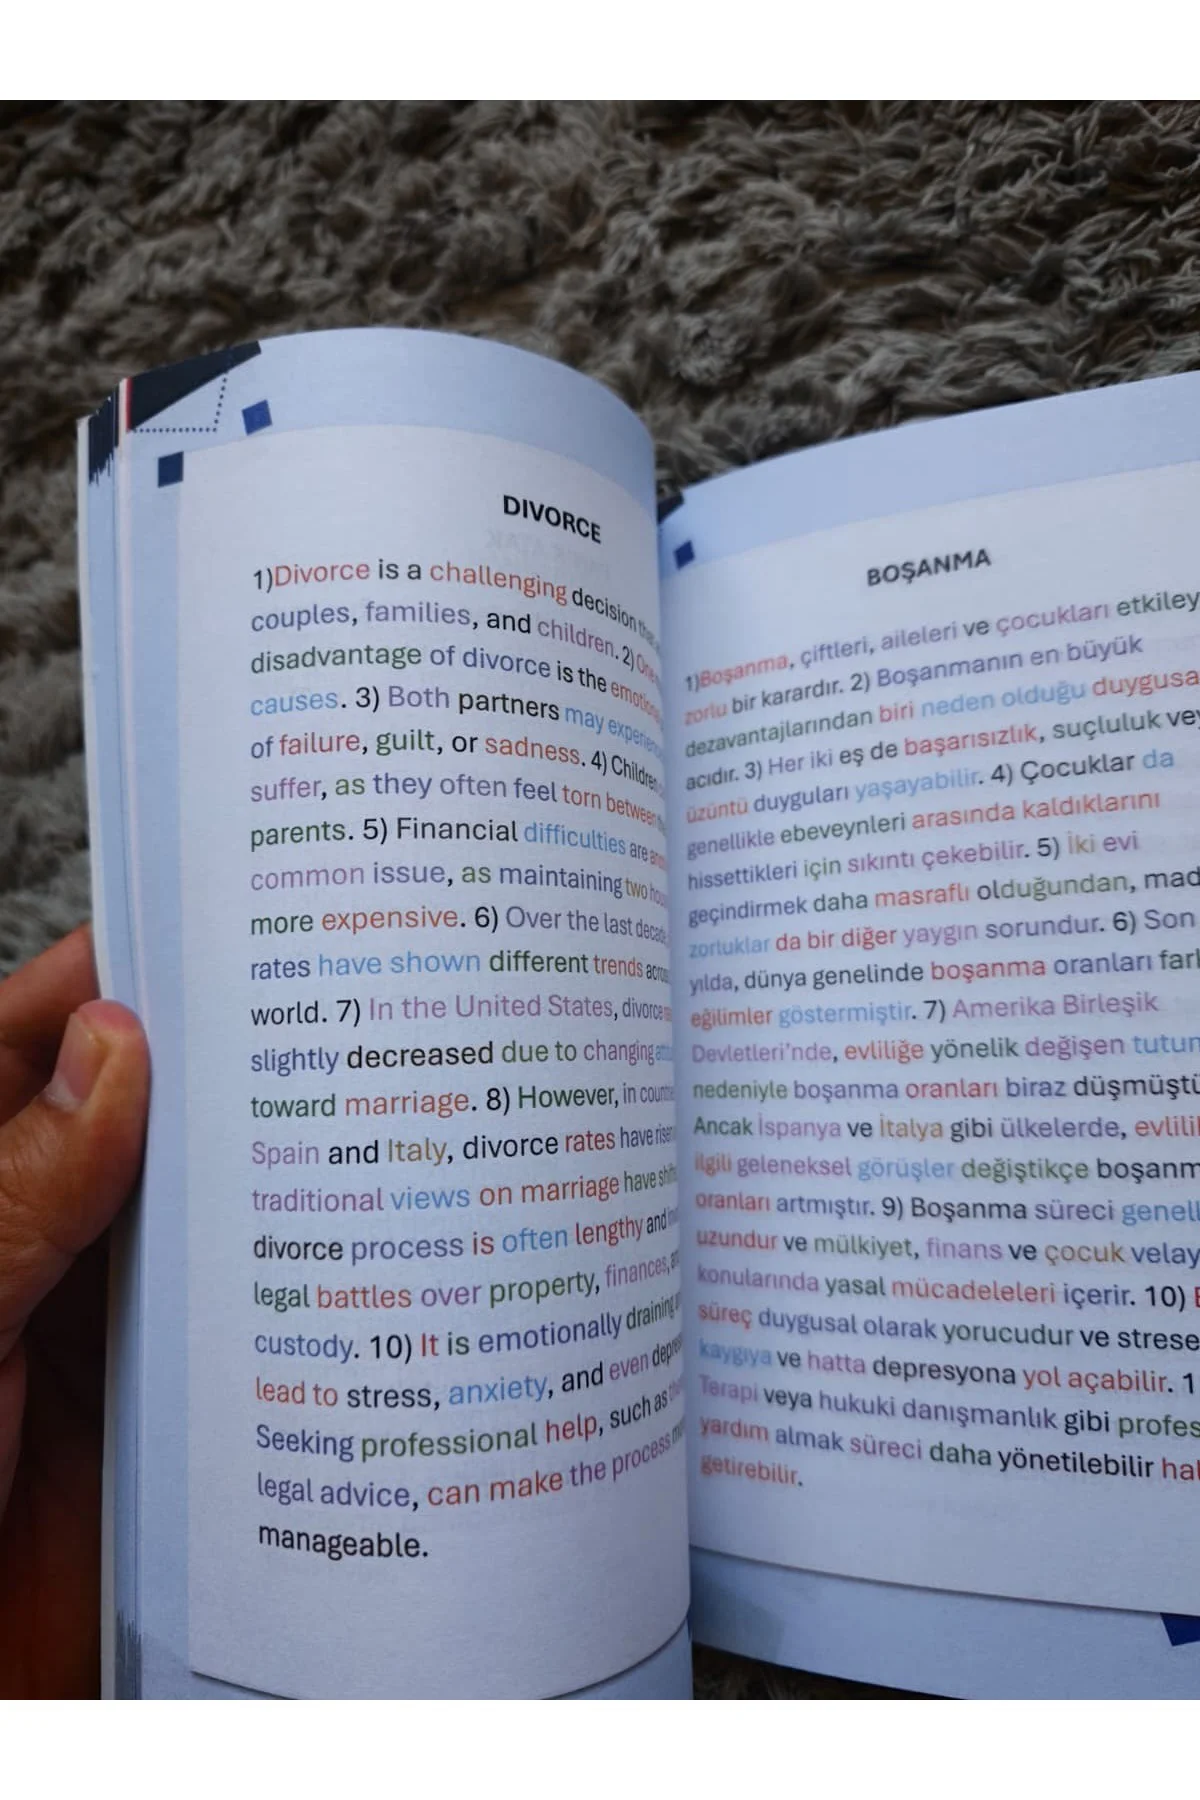 DIVORCE
1)Divorce is a challenging decision
couples, families, and children. 2) One
disadvantage of divorce is the emotional
causes. 3) Both partners may experience
of failure, guilt, or sadness. 4) Children
suffer, as they often feel torn between
parents. 5) Financial difficulties are
common issue, as maintaining two
more expensive. 6) Over the last decade,
rates have shown different trends across
world. 7) In the United States, divorce
slightly decreased due to changing
toward marriage. 8) However, in
Spain and Italy, divorce rates have risen
traditional views on marriage have
divorce process is often lengthy and
legal battles over property, finances,
custody. 10) It is emotionally draining
lead to stress, anxiety, and even
Seeking professional help, such as
legal advice, can make the process
manageable.
BOŞANMA
1)Boşanma, çiftleri, aileleri ve çocukları
zorlu bir karardır. 2) Boşanmanın en büyük
dezavantajlarından biri neden olduğu
acıdır. 3) Her iki eş de başarısızlık, suçluluk
üzüntü duyguları yaşayabilir. 4) Çocuklar da
genellikle ebeveynleri arasında kaldıklarını
hissettikleri için sıkıntı çekebilir. 5) İki evi
geçindirmek daha masraflı olduğundan,
zorluklar da bir diğer yaygın sorundur. 6) Son
yılda, dünya genelinde boşanma oranları
eğilimler göstermiştir. 7) Amerika Birleşik
Devletleri'nde, evliliğe yönelik değişen
nedeniyle boşanma oranları biraz
Ancak İspanya ve İtalya gibi ülkelerde,
ilgili geleneksel görüşler değiştikçe
oranları artmıştır. 9) Boşanma süreci
uzundur ve mülkiyet, finans ve çocuk
konularında yasal mücadeleleri içerir. 10)
süreç duygusal olarak yorucudur ve
kaygıya ve hatta depresyona yol açabilir.
Terapi veya hukuki danışmanlık gibi
yardım almak süreci daha yönetilebilir
getirebilir.